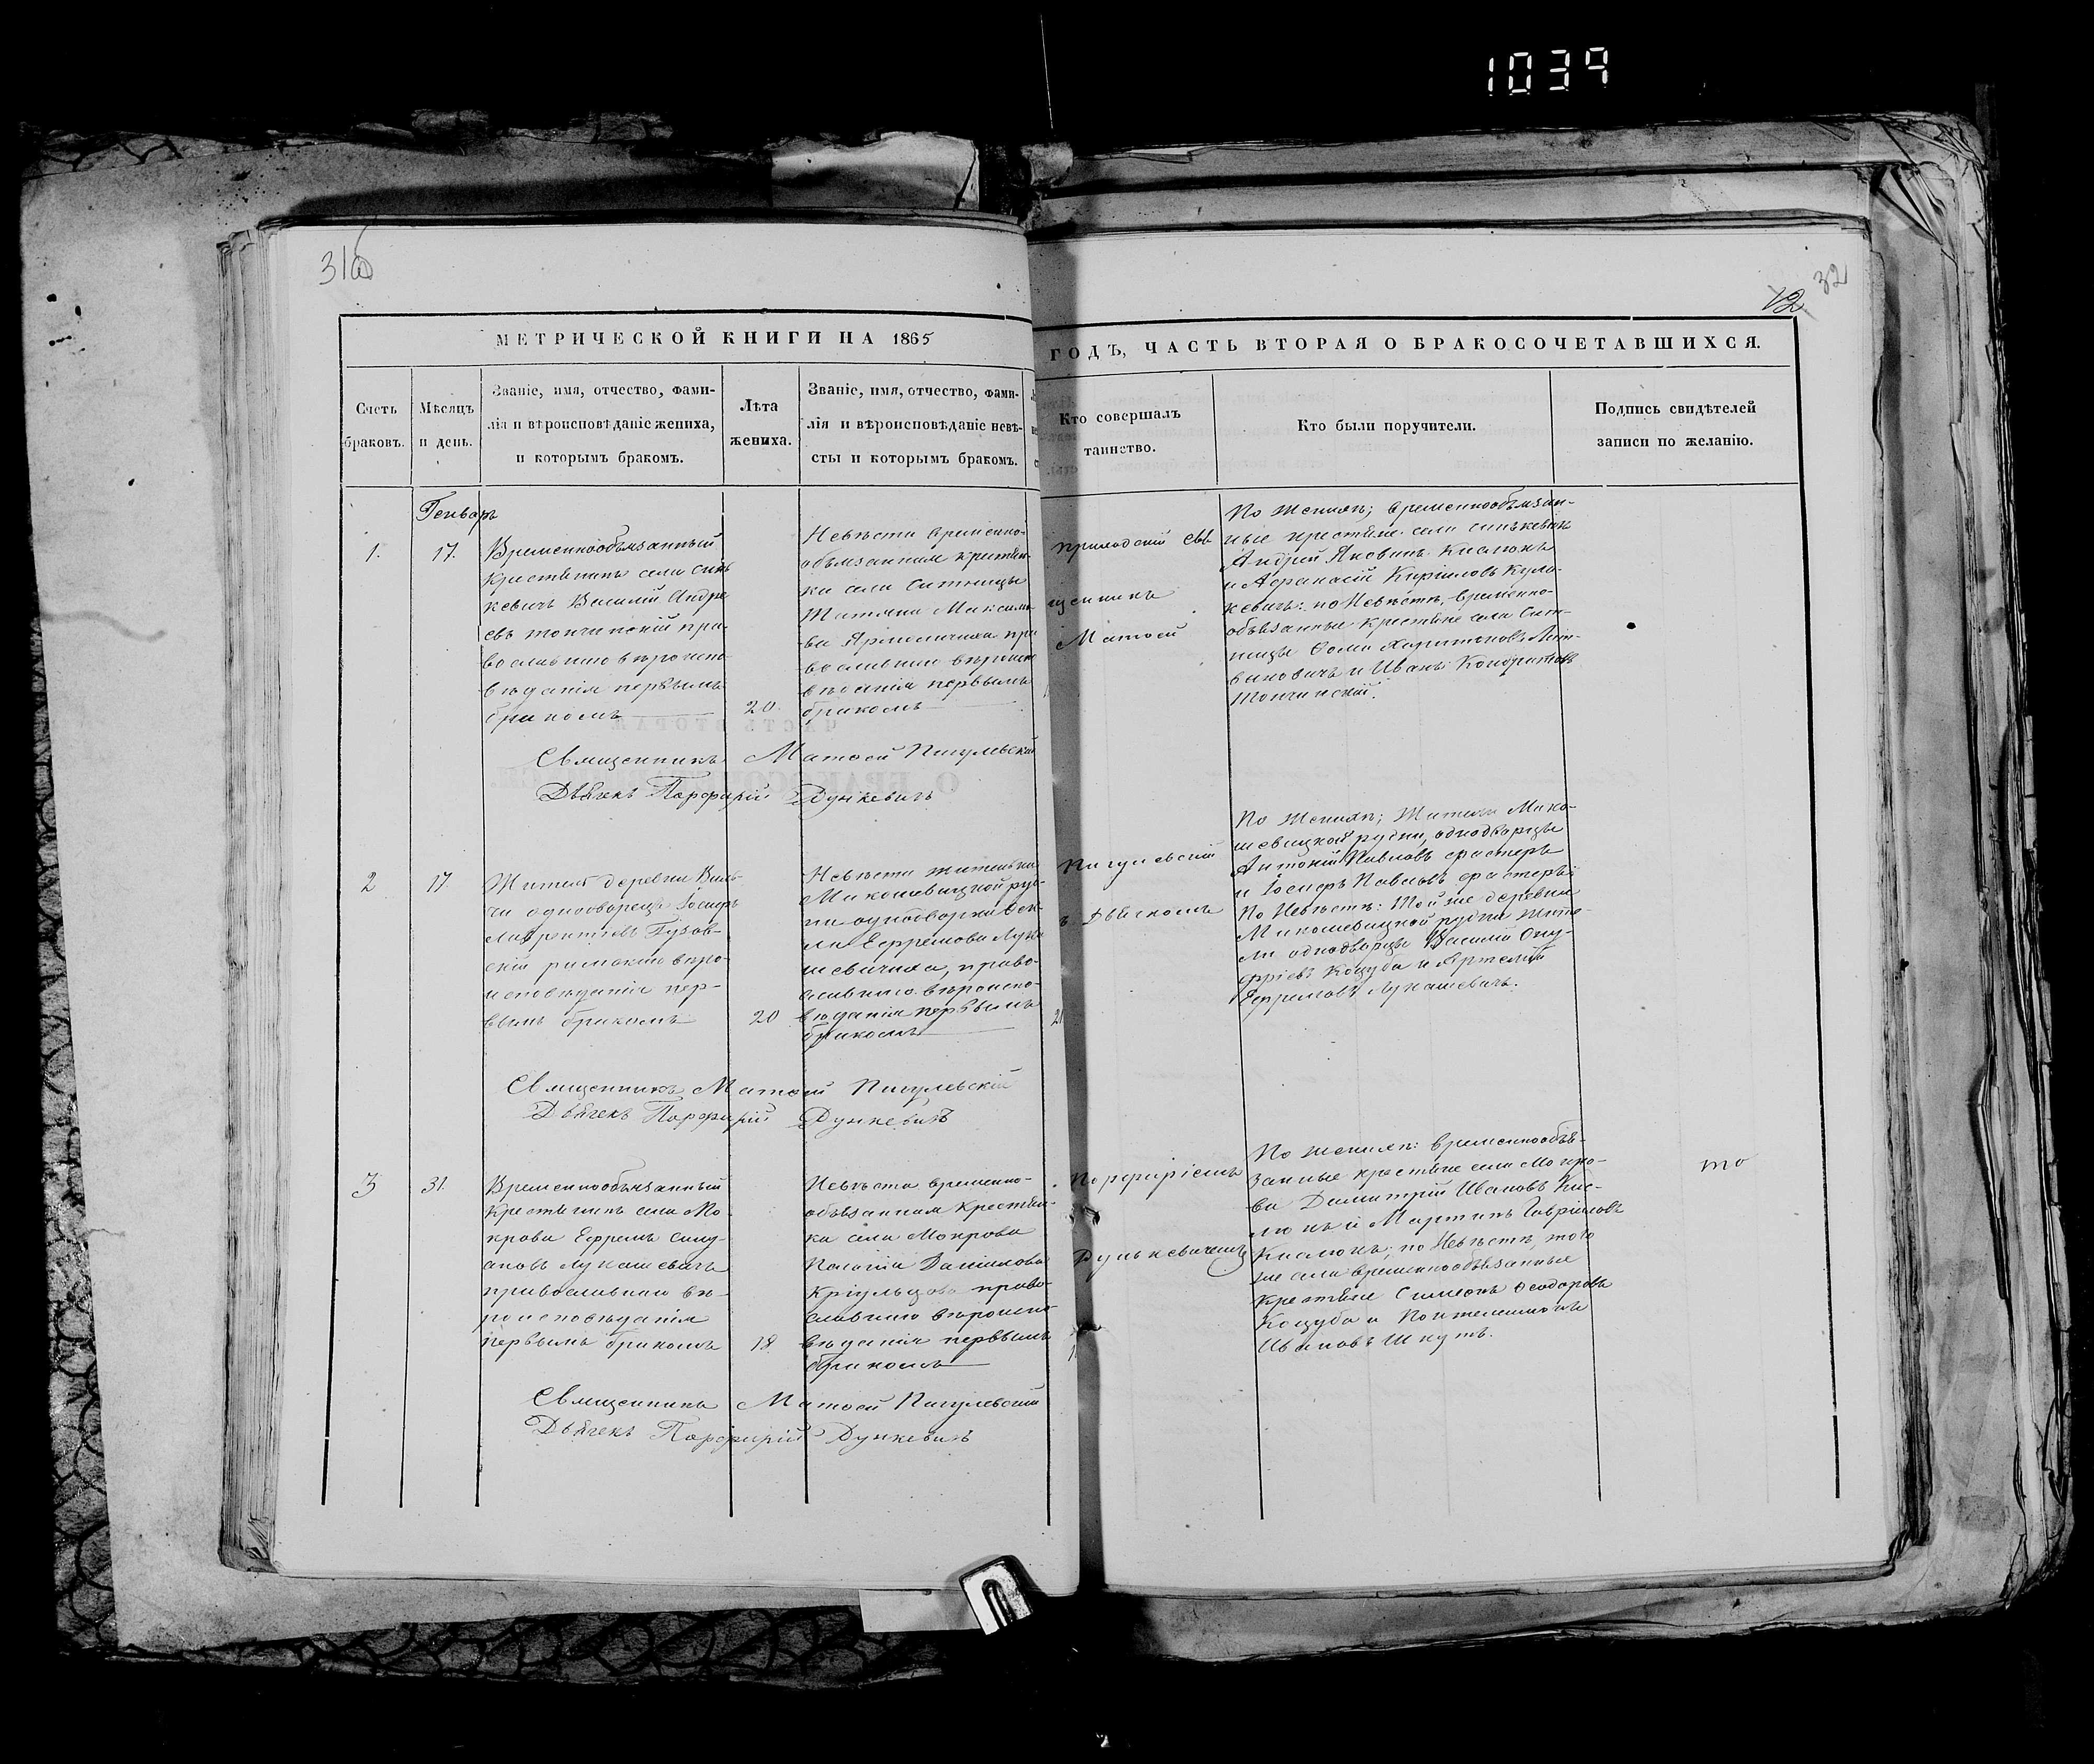 1039
31об
32
12
МЕТРИЧЕСКОЙ КНИГИ НА 1865
ГОДЪ, ЧАСТЬ ВТОРАЯ О БРАКОСОЧЕТАВШИХСЯ.
Счетъ
браковъ.
Мѣсяцъ
и день.
Званіе, имя, отчество, фами-
лія и вѣроисповѣданіе жениха,
и которымъ бракомъ.
Лѣта
жениха.
Званіе, имя, отчество, фами-
лія и вѣроисповѣданіе невѣ-
сты и которымъ бракомъ.
Кто совершалъ
таинство.
Кто были поручители.
Подпись свидѣтелей
записи по желанію.
Генварь
1.
17.
Временнообязанный
крестянинъ села Синь
кевичъ Василій Андре
евъ Тончинскій пра-
вославнаго вѣроиспо-
вѣданія первымъ
бракомъ
20
Невѣста временно-
обязанная крестян-
ка села Ситницы
Татяна Максимо-
ва
православнаго вѣроиспо
вѣданія первымъ
бракомъ
приходскій свя
щенникъ
Матѳей
По женихѣ; временнообязан-
ные крестяне села Синькевичъ
Андрей Яковинъ Кислюкъ
и Афанасій Кириловъ Кула-
кевичъ: по Невѣстѣ, временно-
обязанные крестяне села Сит-
ницы Ѳома Харитоновъ Лит-
виновичъ и Иванъ Кондратовъ
Тончинскій.
Священникъ Матѳей Пигулевскій
Дьячекъ Порфирій Дункевичъ
2
17.
Житель деревни Виль-
чи однодворецъ Іосифъ
Лаврентіевъ Гузов-
скій римскаго вѣро-
исповѣданія пер-
вымъ бракомъ
20
Невѣста жительница
Микошевицкой руд-
ни однодворка Ѳек-
ла Ефремова Лука
шевичиха, право-
славнаго вѣроиспо-
вѣданія первымъ
бракомъ
21
Пигулевскій
съ Дьячкомъ
По женихѣ; Жители Мико-
шевицкой рудни, однодворцы
Антоній Павловъ Фастеръ
и Іосифъ Павловъ Фастеръ;
По Невѣстѣ: Той же деревни
Микошевицкой рудни жите-
ли однодворцы Василій Ону-
фріевъ Коцуба и Артемій
Ефремовъ Лукашевичъ.
Священникъ Матѳей Пигулевскій
Дьячекъ Порфирій Дункевичъ
3
31.
Временнообязанный
крестянинъ села Мо
крова Ефремъ Симу-
ановъ Лукашевичъ
православнаго вѣ-
роисповѣданія
первымъ бракомъ
18
Невѣста временно-
обязанная крестян-
ка села Мокрова
Пелагія Даніилова
право-
славнаго вѣроиспо
вѣданія первымъ
бракомъ
Порфиріемъ
Дунькевичемъ
По женихѣ: временнообя-
занные крестяне села Мокро-
ва Димитрій Ивановъ Кис-
люкъ и Мартинъ Гавріиловъ
Кислюкъ; по Невѣстѣ, того
же села временнообязанные
крестяне Симеонъ Ѳеодоровъ
Коцуба и Пантелеимонъ
Ивановъ Шкутъ.
то
Священникъ Матѳей Пигулевскій
Дьячекъ Порфирій Дункевичъ